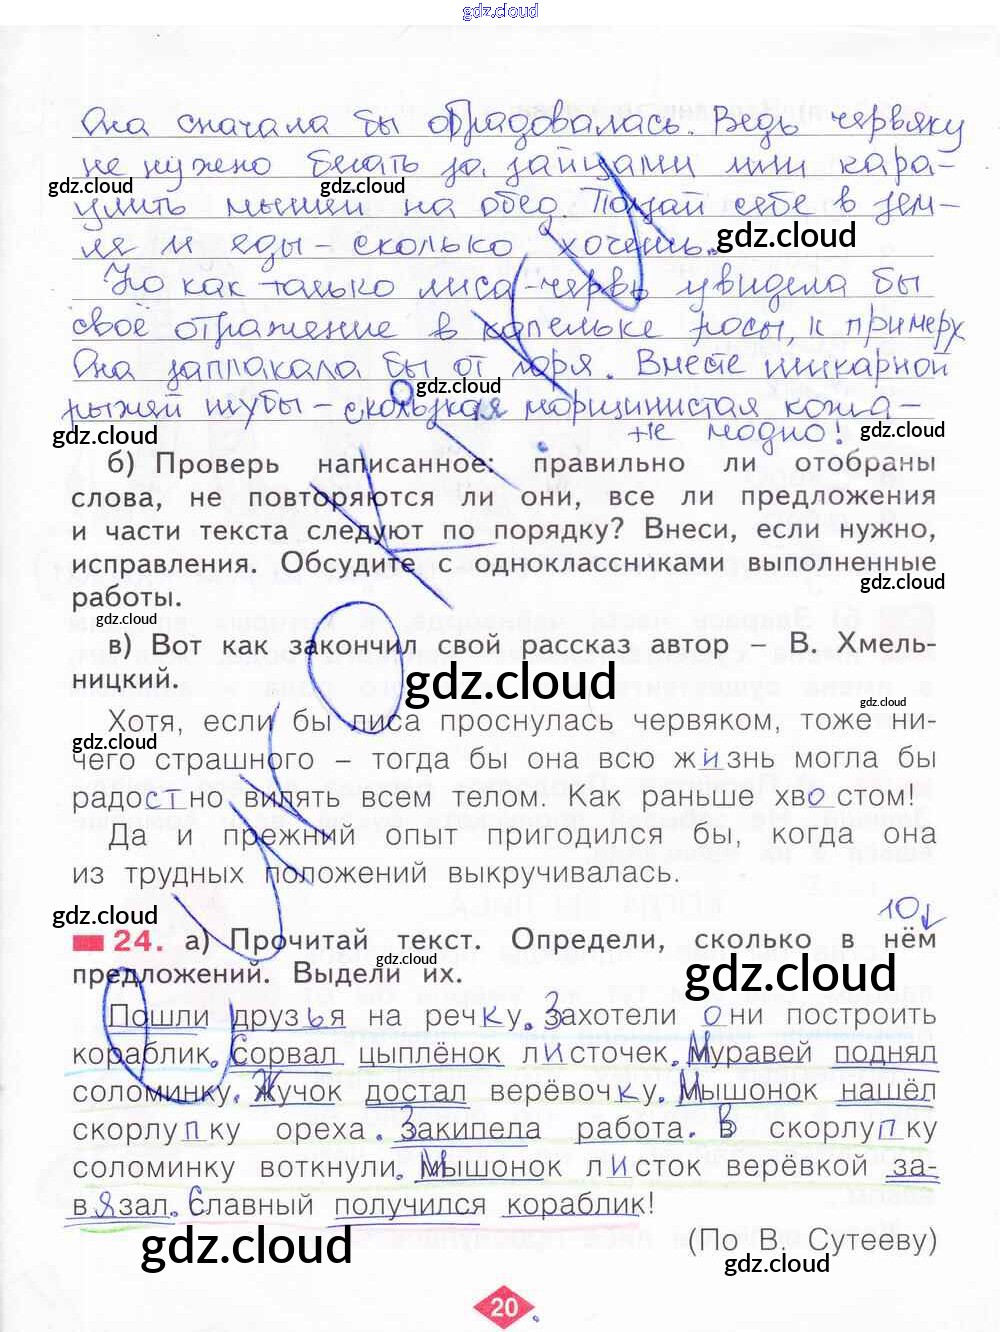 gdz.cloud
Она сначала бы обрадовалась. Ведь червяку
не нужно бегать за зайцами или кара-
gdz.cloud gdz.cloud
улить мышей на обед. Ползай себе в зем-
ле и еды - сколько хочешь. gdz.cloud
Но как только лиса-червь увидела бы
своё отражение в капельке росы, к примеру
Она заплакала бы от горя. Вместе шикарной
gdz.cloud
рыжей шубы - скользкая морщинистая кожа -
не модно!
gdz.cloud gdz.cloud
б) Проверь написанное: правильно ли отобраны
слова, не повторяются ли они, все ли предложения
и части текста следуют по порядку? Внеси, если нужно,
исправления. Обсудите с одноклассниками выполненные
gdz.cloud
работы.
gdz.cloud
в) Вот как закончил свой рассказ автор – В. Хмель-
ницкий.
gdz.cloud
Хотя, если бы лиса проснулась червяком, тоже ни-
gdz.cloud gdz.cloud
чего страшного – тогда бы она всю жизнь могла бы
радостно вилять всем телом. Как раньше хвостом!
Да и прежний опыт пригодился бы, когда она
из трудных положений выкручивалась.
gdz.cloud 10
24. а) Прочитай текст. Определи, сколько в нём
предложений. Выдели их.
gdz.cloud
Пошли друзья на речку. Захотели они построить
кораблик. Сорвал цыплёнок листочек. Муравей поднял
соломинку. Жучок достал верёвочку. Мышонок нашёл
скорлупку ореха. Закипела работа. В скорлупку
соломинку воткнули. Мышонок листок верёвкой за-
вязал. Славный получился кораблик!
gdz.cloud
(По В. Сутееву)
gdz.cloud
20